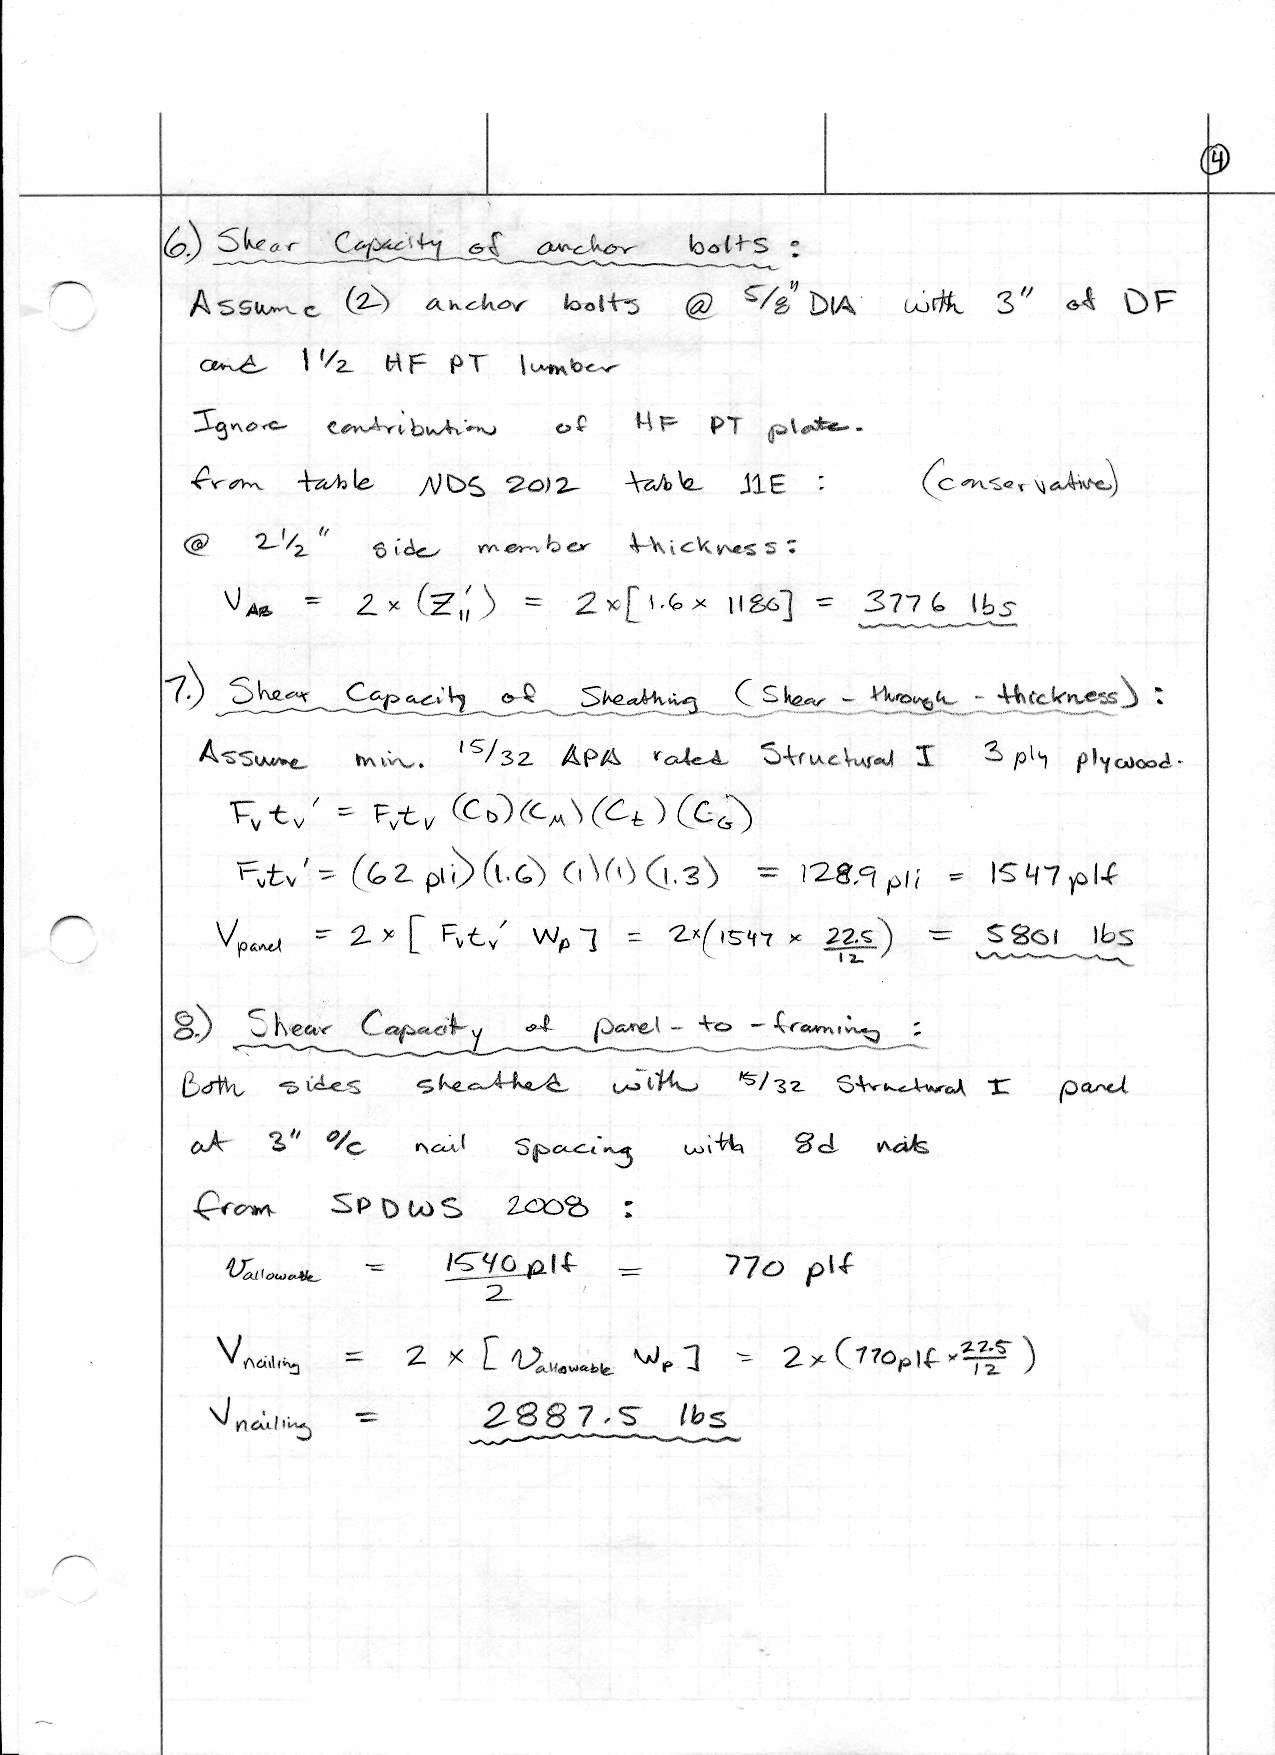 4
6.) Shear Capacity of anchor bolts :
Assume (2) anchor bolts @ 5/8" DIA with 3" of DF
and 1 1/2 HF PT lumber
Ignore contribution of HF PT plate.
from table NDS 2012 table 11E : (conservative)
@ 2 1/2" side member thickness:
V_AB = 2 × (Z'_||) = 2×[1.6 × 1180] = 3776 lbs
7.) Shear Capacity of Sheathing (Shear - through - thickness) :
Assume min. 15/32 APA rated Structural I 3 ply plywood.
F_v t_v' = F_v t_v (C_D)(C_M)(C_t)(C_G)
F_v t_v' = (62 pli)(1.6)(1)(1)(1.3) = 128.9 pli = 1547 plf
V_panel = 2 × [ F_v t_v' W_p ] = 2×(1547 × 22.5/12) = 5801 lbs
8.) Shear Capacity of panel - to - framing :
Both sides sheathed with 15/32 Structural I panel
at 3" o/c nail spacing with 8d nails
from SPDWS 2008 :
v_allowable = 1540 plf/2 = 770 plf
V_nailing = 2 × [ v_allowable W_p ] = 2×(770 plf × 22.5/12)
V_nailing = 2887.5 lbs